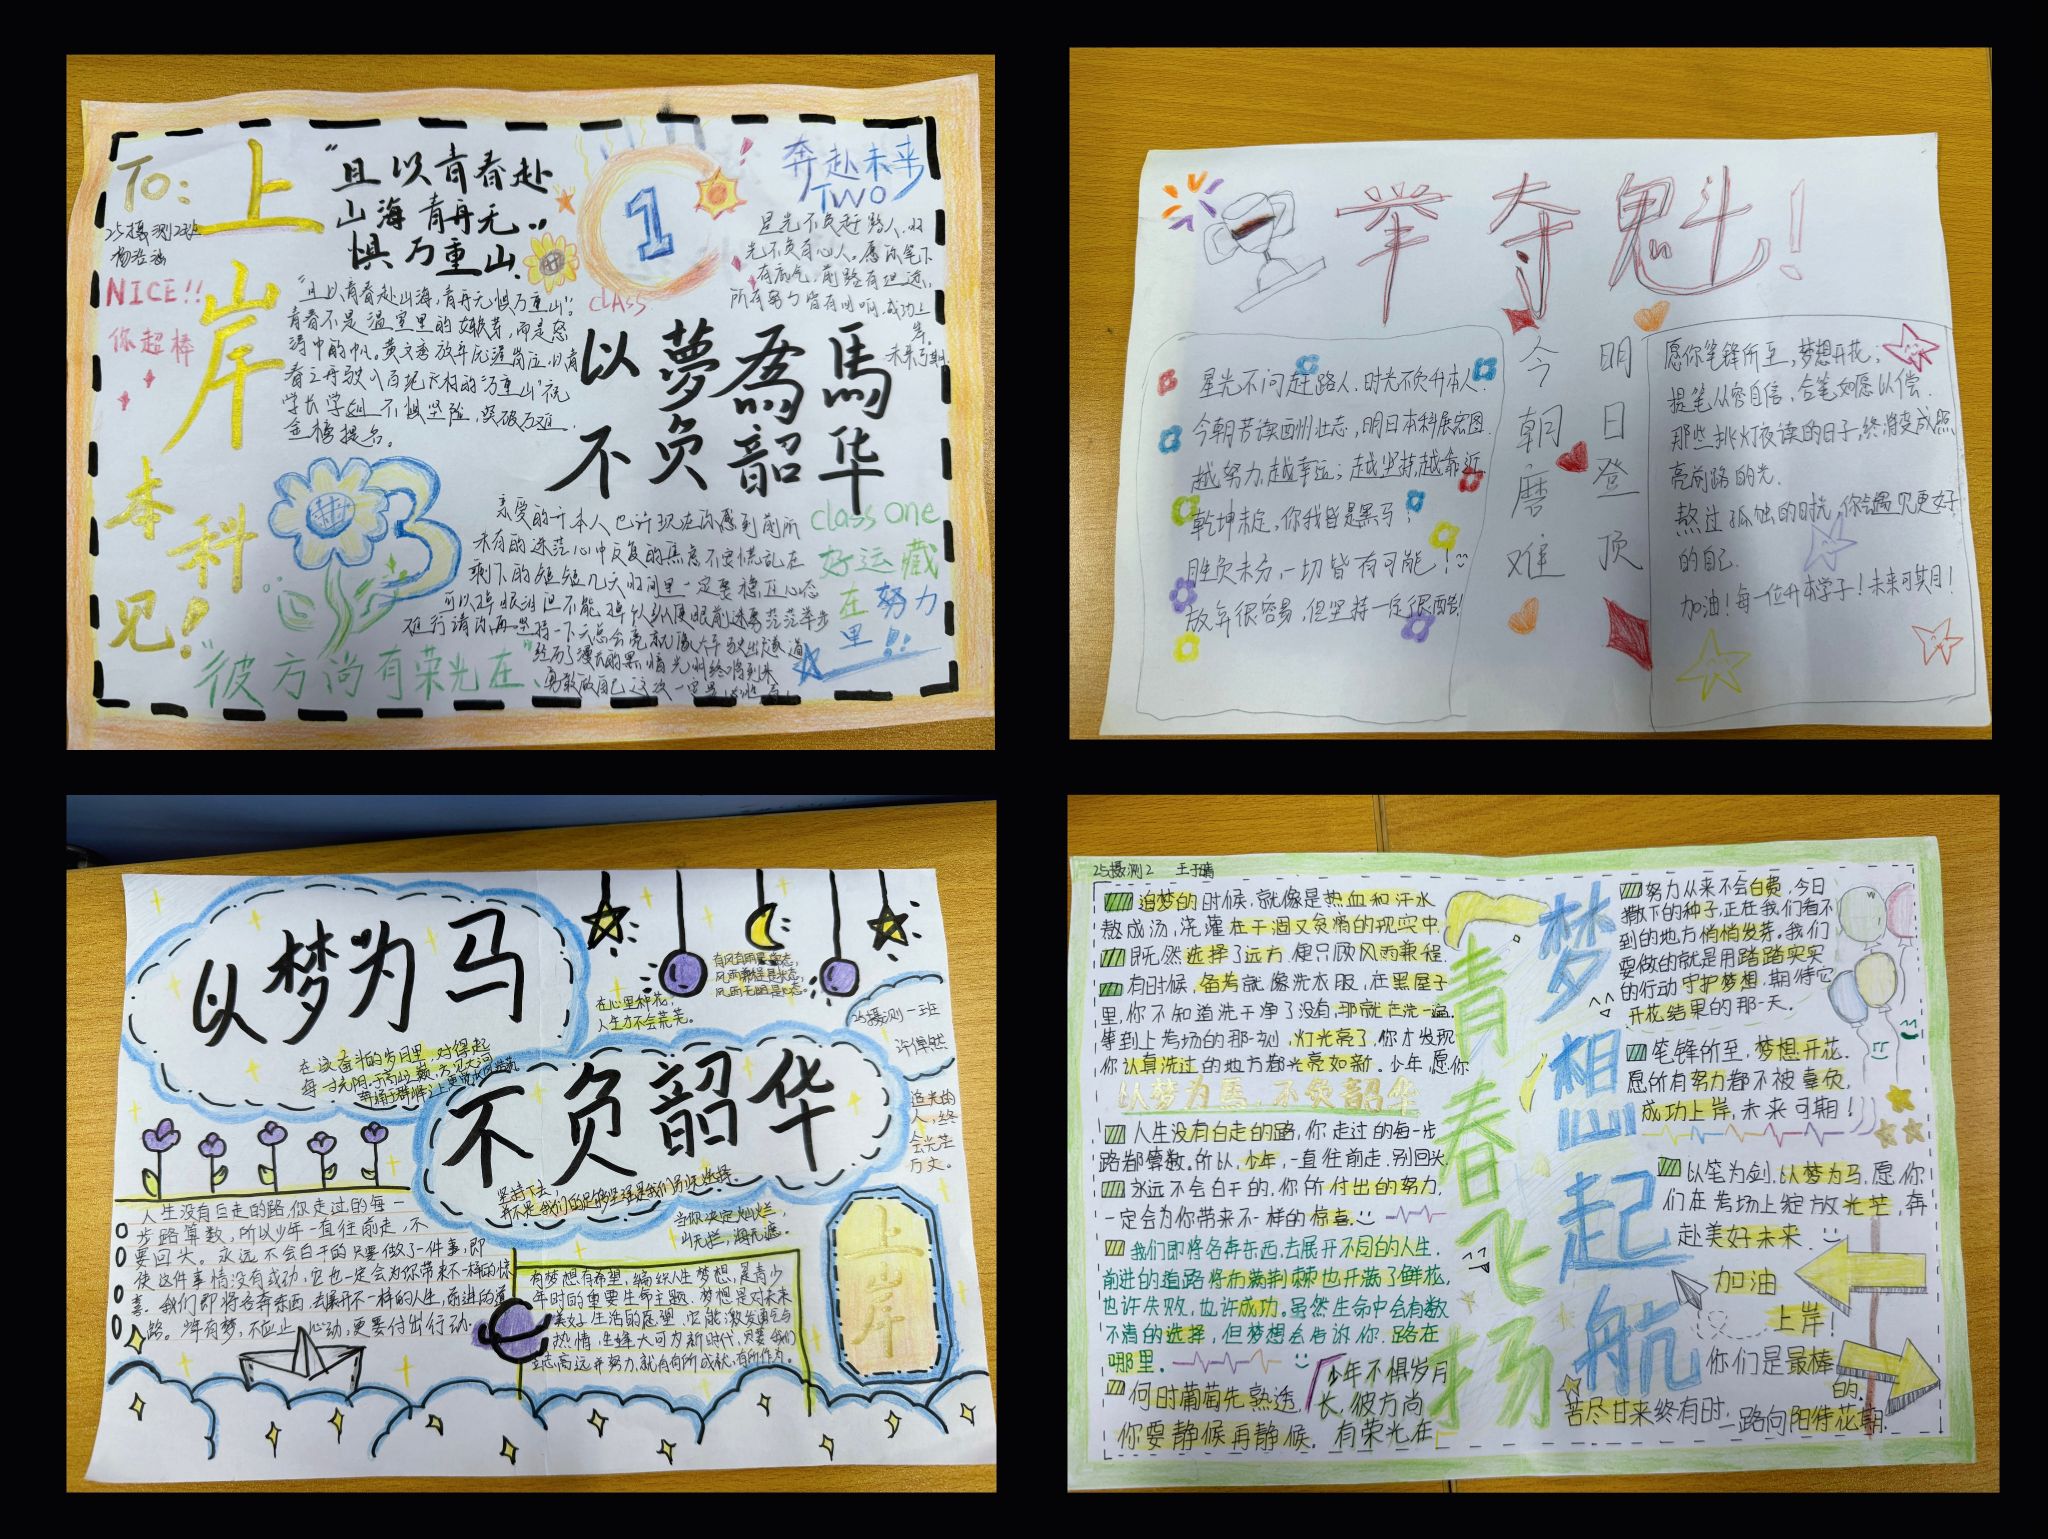 To:
上岸
本科
见!
25摄测2班
NICE!!
你超棒
"且以青春赴
山海青舟无
惧万重山.
1
class
奔赴未来
TWO
星光不负赶路人,时
光不负有心人。愿你笔下
有底气,前路有坦途,
所有努力皆有回响,成功上
岸。
未来可期
"且以青春赴山海,青舟无惧万重山":
青春不是温室里的娇嫩芽,而是怒
涛中的帆。黄文秀放弃优渥岗位,以青
春之舟驶入百坭村的"万重山"祝
学长学姐不惧坚险,突破万难,
金榜提名。
以夢為馬
不负韶华
3
亲爱的升本人也许现在你感到前所
未有的迷茫心中反复的焦虑不要慌乱在
剩下的短短几天时间里一定要稳住心态
可以掉眼泪但不能掉队纵使眼前迷雾茫茫举步
难行请你再坚持一下天总会亮就像火车驶出隧道
经历了漫长的黑暗光州终将到来
class one
好运藏
在努力
里!!
"彼方尚有荣光在"
举夺魁!
星光不问赶路人,时光不负升本人.
今朝苦读酬壮志,明日本科展宏图.
越努力,越幸运;越坚持,越靠近.
乾坤未定,你我皆是黑马!
胜负未分,一切皆有可能!
放弃很容易,但坚持一定很酷!
今朝磨难
明日登顶
愿你笔锋所至,梦想开花,
提笔从容自信,合笔如愿以偿.
那些挑灯夜读的日子,终将变成照
亮前路的光.
熬过孤独的时光,你会遇见更好
的自己.
加油!每一位升本学子!未来可期!
以梦为马
在这奋斗的岁月里,对得起
每一寸光阴.
不负韶华
坚持下去,
并不是我们的足够坚强是我们别无选择.
在心里种花,
人生才不会荒芜。
有风有雨是常态,
风雨兼程是状态,
风雨无阻是心态。
25摄测一班
追光的
人,终
会光芒
万丈。
当你决定灿烂,
山无拦,海无遮。
上岸
人生没有白走的路,你走过的每一
步路算数,所以少年一直往前走,不
要回头。永远不会白干的只要做了一件事,即
使这件事情没有成功,它也一定会为你带来不一样的惊
喜.我们即将各奔东西,去展开不一样的人生,前进的道
路。少年有梦,不应止于心动,更要付出行动.
有梦想有希望,编织人生梦想,是青少
年时的重要生命主题.梦想是对未来
美好生活的愿望,它能激发勇气与
热情,生逢大可为新时代,只要我们
立志高远并努力,就有向所成就,有所作为。
25摄测2 王于晴
追梦的时候,就像是热血和汗水
熬成汤,浇灌在干涸又贫瘠的现实中.
既然选择了远方,便只顾风雨兼程.
有时候,备考就像洗衣服,在黑屋子
里,你不知道洗干净了没有,那就在洗一遍.
等到上考场的那一刻,灯光亮了,你才发现
你认真洗过的地方都光亮如新.少年,愿你
以梦为馬,不负韶华
人生没有白走的路,你走过的每一步
路都算数.所以,少年,一直往前走.别回头.
永远不会白干的,你所付出的努力,
一定会为你带来不一样的惊喜.
我们即将各奔东西,去展开不同的人生.
前进的道路将布满荆棘也开满了鲜花,
也许失败,也许成功.虽然生命中会有数
不清的选择,但梦想会告诉你,路在
哪里.
何时葡萄先熟透,
你要静候再静候.
少年不惧岁月
长,彼方尚
有荣光在
青春飞扬
梦想起航
努力从来不会白费,今日
撒下的种子,正在我们看不
到的地方悄悄发芽.我们
要做的就是用踏踏实实
的行动守护梦想,期待它
开花结果的那一天.
笔锋所至,梦想开花.
愿所有努力都不被辜负,
成功上岸,未来可期!
以笔为剑,以梦为马,愿你
们在考场上绽放光芒,奔
赴美好未来.
加油
上岸!
你们是最棒
的.
苦尽甘来终有时,一路向阳待花期.